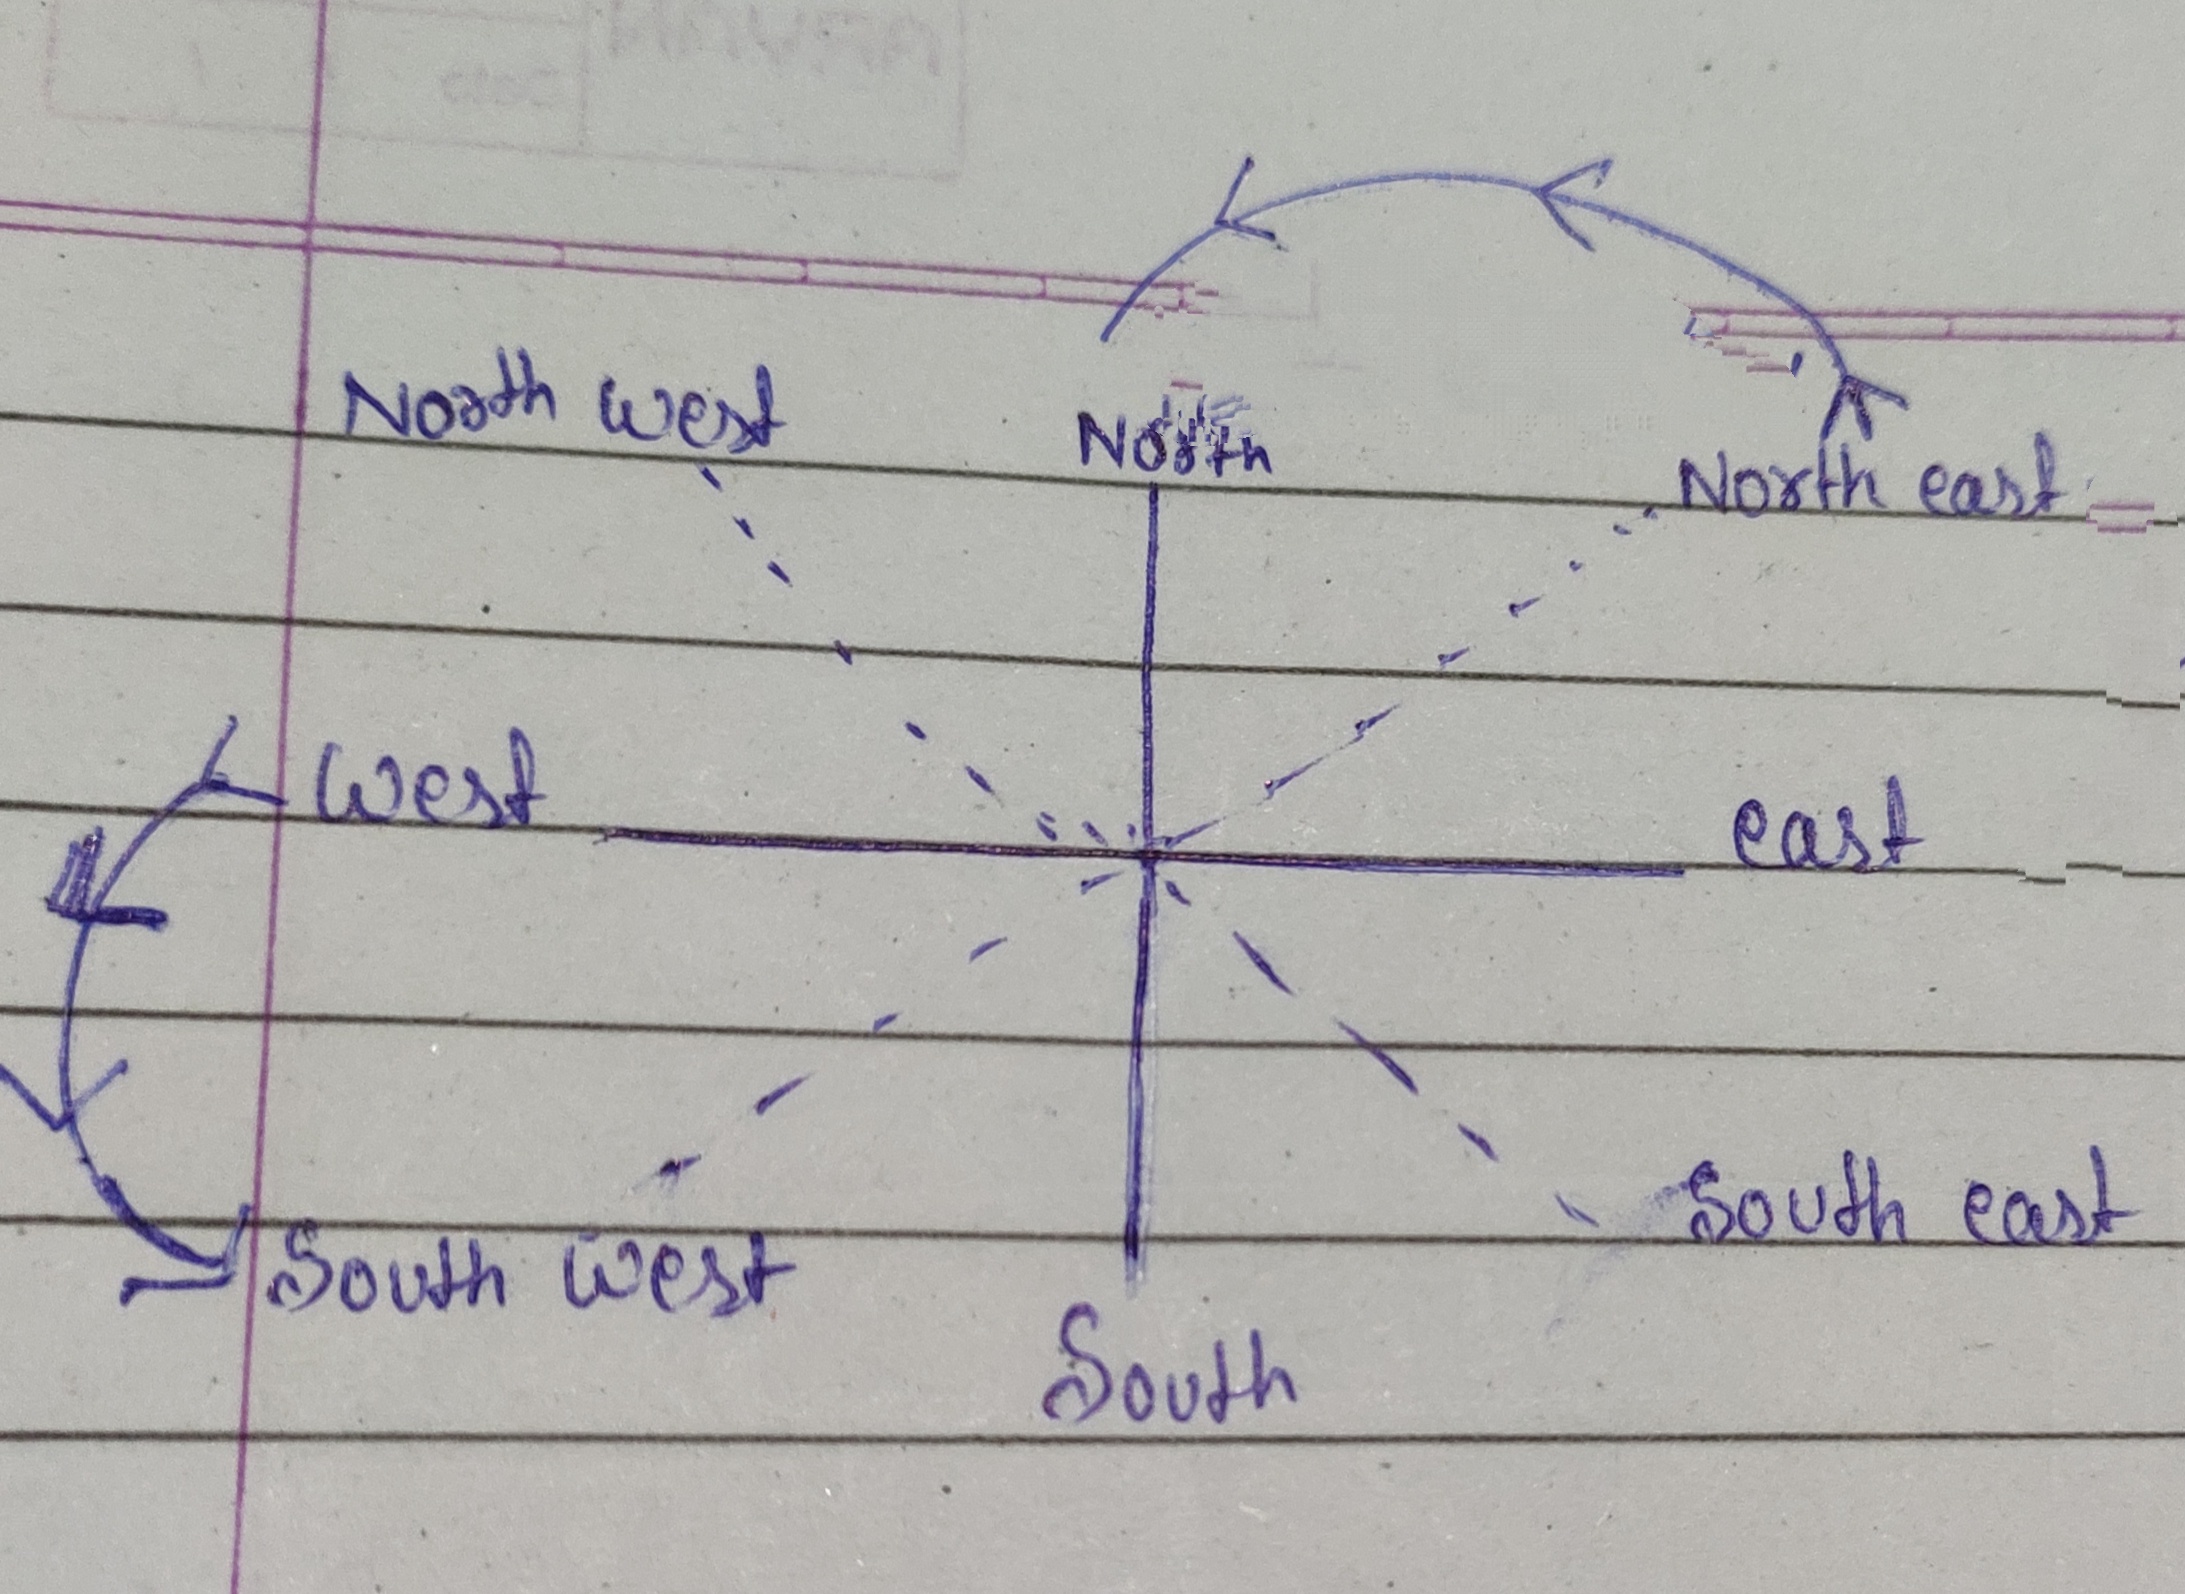 North west
North
North east
West
east
South west
South east
South